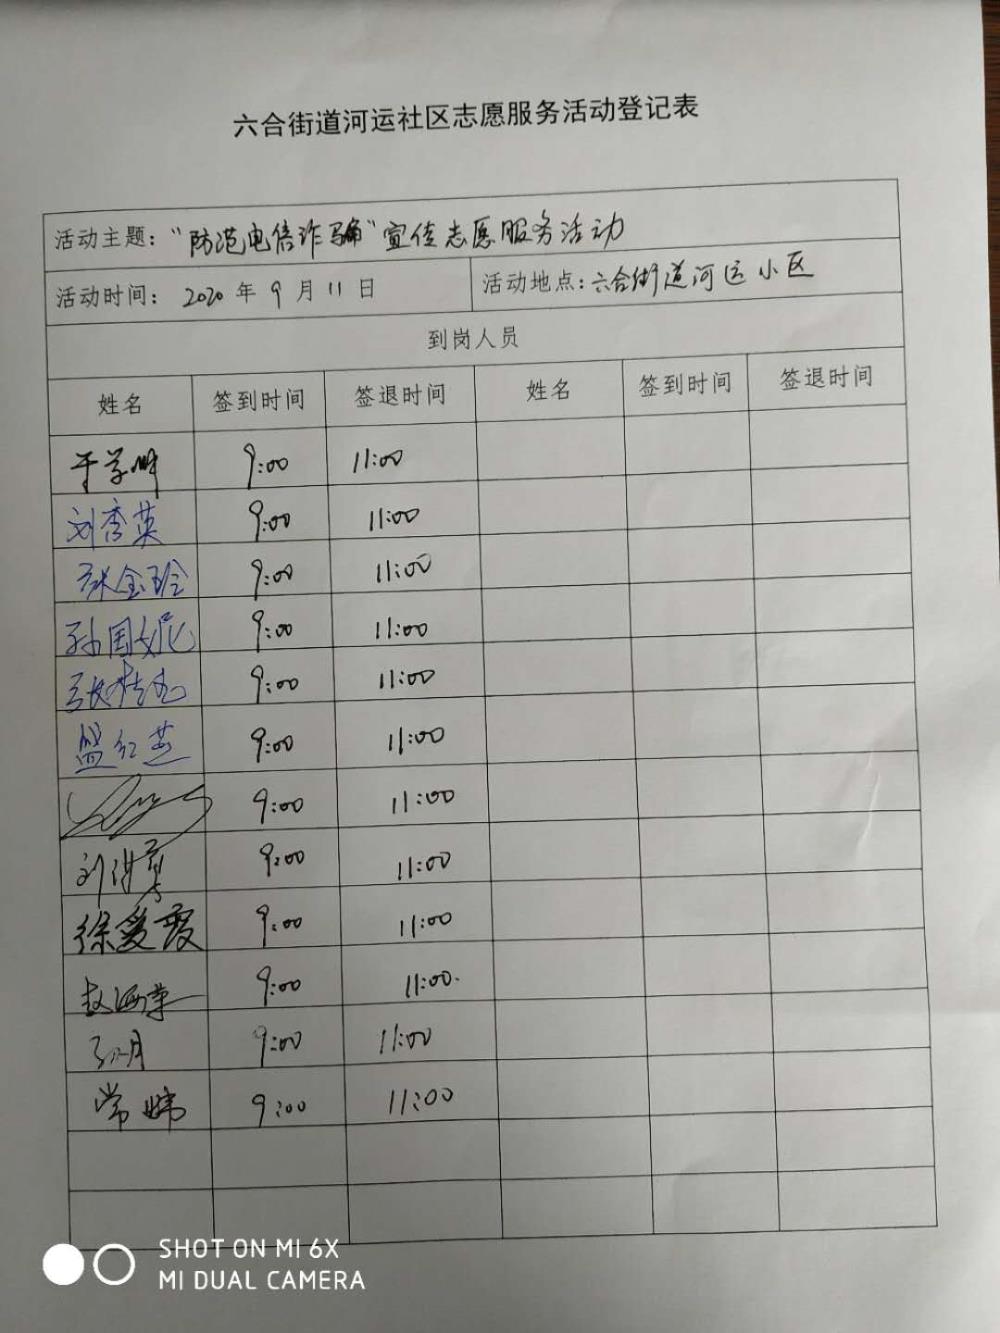 六合街道河运社区志愿服务活动登记表
活动主题：“防范电信诈骗”宣传志愿服务活动
活动时间： 2020 年 9 月 11 日 活动地点：六合街道河运小区
到岗人员
姓名 签到时间 签退时间 姓名 签到时间 签退时间
9:00 11:00
刘秀英 9:00 11:00
张金玲 9:00 11:00
孙国妮 9:00 11:00
9:00 11:00
9:00 11:00
9:00 11:00
9:00 11:00
徐爱霞 9:00 11:00
9:00 11:00.
9:00 11:00
常娜 9:00 11:00
SHOT ON MI 6X
MI DUAL CAMERA